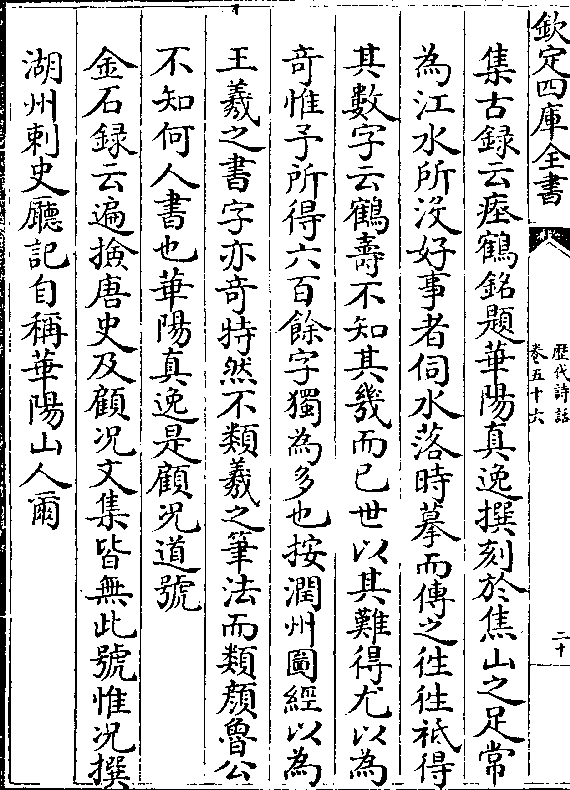 欽定四庫全書
歷代詩話
卷五十六
二十
集古録云瘞鶴銘題華陽真逸撰刻於焦山之足常
為江水所没好事者伺水落時摹而傳之徃徃祇得
其數字云鶴壽不知其幾而已世以其難得尤以為
奇惟予所得六百餘字獨為多也按潤州圖經以為
王羲之書字亦竒特然不類羲之筆法而類顔魯公
不知何人書也華陽真逸是顧况道號
金石録云遍撿唐史及顧况文集皆無此號惟况撰
湖州刺史廳記自稱華陽山人爾